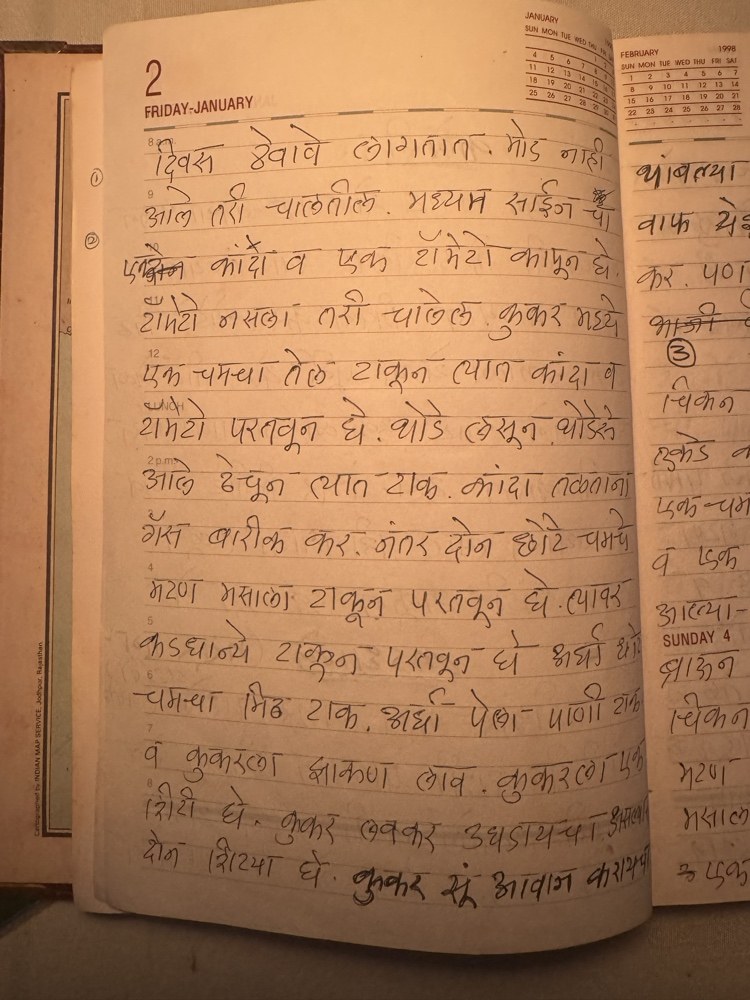 JANUARY
SUN MON TUE WED THU
4 5 6 7 8
11 12 13 14 15
18 19 20 21 22
25 26 27 28 29
2
FRIDAY-JANUARY
8 a.m.
दिवस ठेवावे लागतात. मोड नाही
①
9
आले तरी चालतील. मध्यम साईज चा
②
एक कांदा व एक टॉमेटो कापून घे.
टॉमेटो नसला तरी चालेल. कुकर मध्ये
12
एक चमचा तेल टाकून त्यात कांदा व
LUNCH
टॉमेटो परतवून घे. थोडे लसून थोडेसे
2 p.m.
आले ठेचून त्यात टाक. कांदा तळताना
गॅस बारीक कर. नंतर दोन छोटे चमचे
4
मटण मसाला टाकून परतवून घे. त्यावर
5
कडधान्ये टाकून परतवून घे अर्धा छोटे
6
चमचा मिठ टाक. अर्धा पेला पाणी टाक
7
व कुकरला झाकण लाव. कुकरला एक
8
शिटी घे. कुकर लवकर उघडायचा
दोन शिट्या घे. कुकर सूं आवाज करायची
FEBRUARY 1998
SUN MON TUE WED THU FRI SAT
1 2 3 4 5 6 7
8 9 10 11 12 13 14
15 16 17 18 19 20 21
22 23 24 25 26 27 28
थांबल्या
वाफ
कर. पण
भाजी
③
चिकन
एक चम
व एक
आल्या-
SUNDAY 4
ब्राऊन
चिकन
मटण
मसाल
Cartographed by INDIAN MAP SERVICE, Jodhpur, Rajasthan.